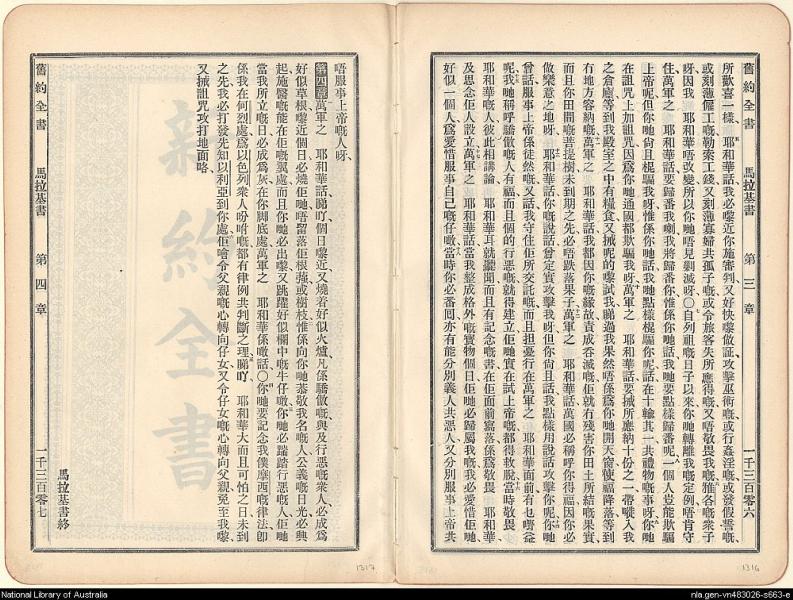 舊約全書 馬拉基書 第三章 一千三百零六
所歡喜一樣、耶和華話、我必嚟近你施審判、又好快嚟做証、攻擊巫術嘅、或行姦淫嘅、或發假誓嘅、
或刻薄僱工嘅、勒索工錢、又刻薄寡婦共孤子嘅、或令旅客失所應得嘅、又唔敬畏我嘅、雅各嘅衆子
呀、因我 耶和華唔改變、所以你哋唔見剿滅呀○自列祖嘅日子以來、你哋轉離我嘅定例、唔肯守
住、萬軍之 耶和華話、要歸番我喇、我將歸番你、惟係你哋話、我哋要點樣歸番呢、一個人豈能欺騙
上帝呢、但你哋尙且棍騙我呀、惟係你哋話、我哋點樣棍騙你呢、話在十輸其一共禮物嘅事呀、你哋
在詛咒上加詛咒、因爲你哋通國都欺騙我呀、萬軍之 耶和華話、要揻所應納十份之一、帶嚟入我
之倉廒、等到我殿室之中有糧食、又揻呢的嚟試我、睇過我果然唔係爲你哋開天窗、使福降落、等到
有地方容納嘅、萬軍之 耶和華話、我都因你嘅緣故、責成吞滅嘅、佢就冇殘害你田土所結嘅果實、
而且你田間嘅菩提樹、未到期之先、必唔跌落果子、萬軍之 耶和華話、萬國必稱呼你得福、因你必
做樂意之地呀、 耶和華話、你嘅說話、曾定實攻擊我呀、但你尙且話、我點樣用說話攻擊你呢、你哋
曾話、服事上帝係徒然嘅、又話、我守住佢所交託嘅、而且担憂行在萬軍之 耶和華面前、有乜嘢益
呢、我哋稱呼驕傲嘅人有福、而且個的行惡嘅、就得建立、佢哋實在試上帝嘅、都得救脫、當時敬畏
耶和華嘅人彼此相講論、 耶和華耳就聽聞、而且有記念嘅書、在佢面前寫落、係爲敬畏 耶和華、
及思念佢人設立、萬軍之 耶和華話、當我整成格外嘅寶物個日、佢哋必歸屬我嘅、我必愛惜佢哋、
好似一個人爲愛惜服事自己嘅仔噉、當時你必番囘、亦有能分別義人共惡人、又分別服事上帝共
唔服事上帝嘅人呀、
第四章 萬軍之 耶和華話、睇吓、個日嚟近、又燒着好似火爐、凡係驕傲嘅、與及行惡嘅衆人、必成爲
好似草根、嚟近個日必燒佢哋、唔留落佢根、或樹枝、惟係向你哋恭敬我名嘅人、公義嘅日光必興
起、施醫嘅能在佢嘅翼處、而且你哋必出嚟、又跳躍好似欄中嘅牛仔噉、你哋必踏踏行惡嘅人、佢哋
當我所立嘅日、必成爲灰、在你脚底處、萬軍之 耶和華係噉話○你哋要記念我僕摩西嘅律法、卽
係我在何烈處、爲以色列衆人吩咐嘅、都有律例共判斷之理、睇吓、 耶和華大而且可怕之日未到
之先、我必打發先知以利亞到你處、佢噲令父親嘅心轉向仔女、又令仔女嘅心轉向父親、免至我嚟、
又揻詛咒攻打地面略、
馬拉基書終
舊約全書 馬拉基書 第四章 一千三百零七
新約全書
1317
1316
National Library of Australia
nla.gen-vn483026-s663-e